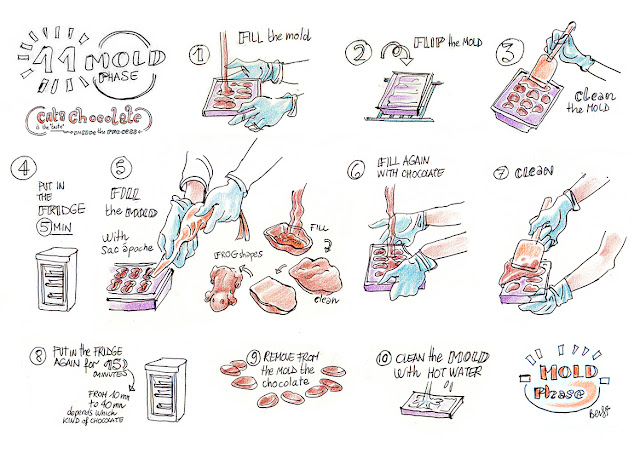 11 MOLD
PHASE
Cuts Chocolate
is the "taste"
outside the process
1
FILL the mold
2
FLIP the MOLD
3
CLean
the MOLD
4
PUT IN
THE
FRIDGE
5 MIN
5
FILL
the MOLD
with
sac à poche
FROG shapes
FILL
2
clean
6
FILL AGAIN
WITH CHOCOLATE
7
CLEAN
8
PUT IN the FRIDGE
AGAIN for 15
MINUTES
FROM 10 mn
to 40 mn
depends which
KIND of CHOCOLATE
9
REMOVE FROM
the MOLD the
chocolate
10
CLEAN the MOLD
with HOT WATER
MOLD
Phase